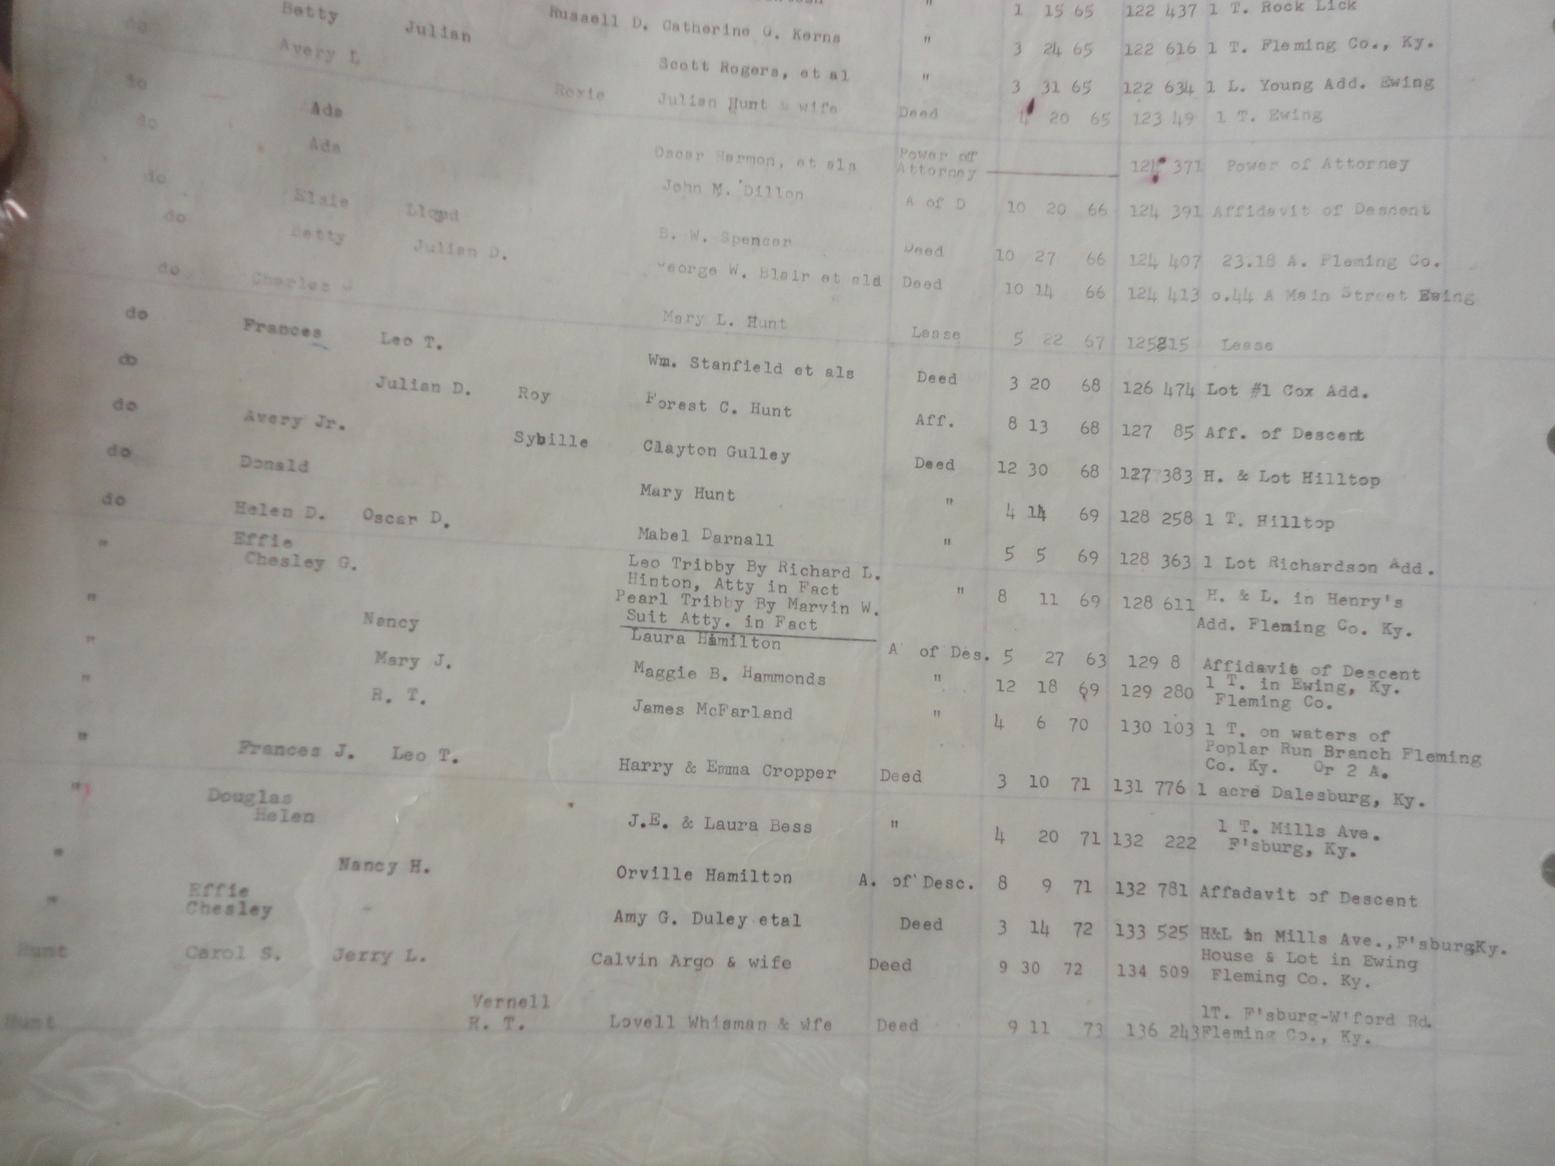 " 1 15 65 122 437 1 T. Rock Lick
do Betty Julian Russell D. Catherine O. Kerns " 3 24 65 122 616 1 T. Fleming Co., Ky.
Avery L Scott Rogers, et al " 3 31 65 122 634 1 L. Young Add. Ewing
do Roxie Julian Hunt & wife Deed 4 20 65 123 49 1 T. Ewing
do Ada Oscar Harmon, et als Power of Attorney 124 371 Power of Attorney
do Ada John M. Dillon A of D 10 20 66 124 391 Affidavit of Descent
do Elsie Lloyd B. W. Spencer Deed 10 27 66 124 407 23.18 A. Fleming Co.
do Betty Julian D. George W. Blair et ald Deed 10 14 66 124 413 0.44 A Main Street Ewing
do Charles J Mary L. Hunt Lease 5 22 67 125 215 Lease
do Frances Leo T. Wm. Stanfield et als Deed 3 20 68 126 474 Lot #1 Cox Add.
do Julian D. Roy Forest C. Hunt Aff. 8 13 68 127 85 Aff. of Descent
do Avery Jr. Sybille Clayton Gulley Deed 12 30 68 127 383 H. & Lot Hilltop
do Donald Mary Hunt " 4 14 69 128 258 1 T. Hilltop
do Helen D. Oscar D. Mabel Darnall " 5 5 69 128 363 1 Lot Richardson Add.
" Effie
Chesley G. Leo Tribby By Richard L.
Hinton, Atty in Fact " 8 11 69 128 611 H. & L. in Henry's
Pearl Tribby By Marvin W.
Suit Atty. in Fact Add. Fleming Co. Ky.
" Nancy Laura Hamilton A of Des. 5 27 63 129 8 Affidavit of Descent
" Mary J. Maggie B. Hammonds " 12 18 69 129 280 1 T. in Ewing, Ky.
Fleming Co.
" R. T. James McFarland " 4 6 70 130 103 1 T. on waters of
Poplar Run Branch Fleming
Co. Ky. Or 2 A.
" Frances J. Leo T. Harry & Emma Cropper Deed 3 10 71 131 776 1 acre Dalesburg, Ky.
" Douglas
Helen J.E. & Laura Bess " 4 20 71 132 222 1 T. Mills Ave.
F'sburg, Ky.
" Nancy H. Orville Hamilton A. of Desc. 8 9 71 132 781 Affadavit of Descent
" Effie
Chesley Amy G. Duley etal Deed 3 14 72 133 525 H&L in Mills Ave.,F'sburgKy.
Hunt Carol S. Jerry L. Calvin Argo & wife Deed 9 30 72 134 509 House & Lot in Ewing
Fleming Co. Ky.
Hunt Vernell
R. T. Lovell Whisman & wfe Deed 9 11 73 136 243 1T. F'sburg-W'ford Rd.
Fleming Co., Ky.